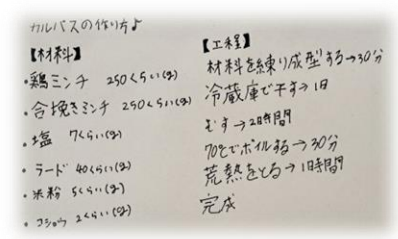 カルパスの作り方♪
【材料】
・鶏ミンチ 250くらい(g)
・合挽きミンチ 250くらい(g)
・塩 7くらい(g)
・ラード 40くらい(g)
・米粉 5くらい(g)
・コショウ 2くらい(g)
【工程】
材料を練り成型する→30分
冷蔵庫で干す→1日
むす→2時間
70℃でボイルする→30分
荒熱をとる→1時間
完成